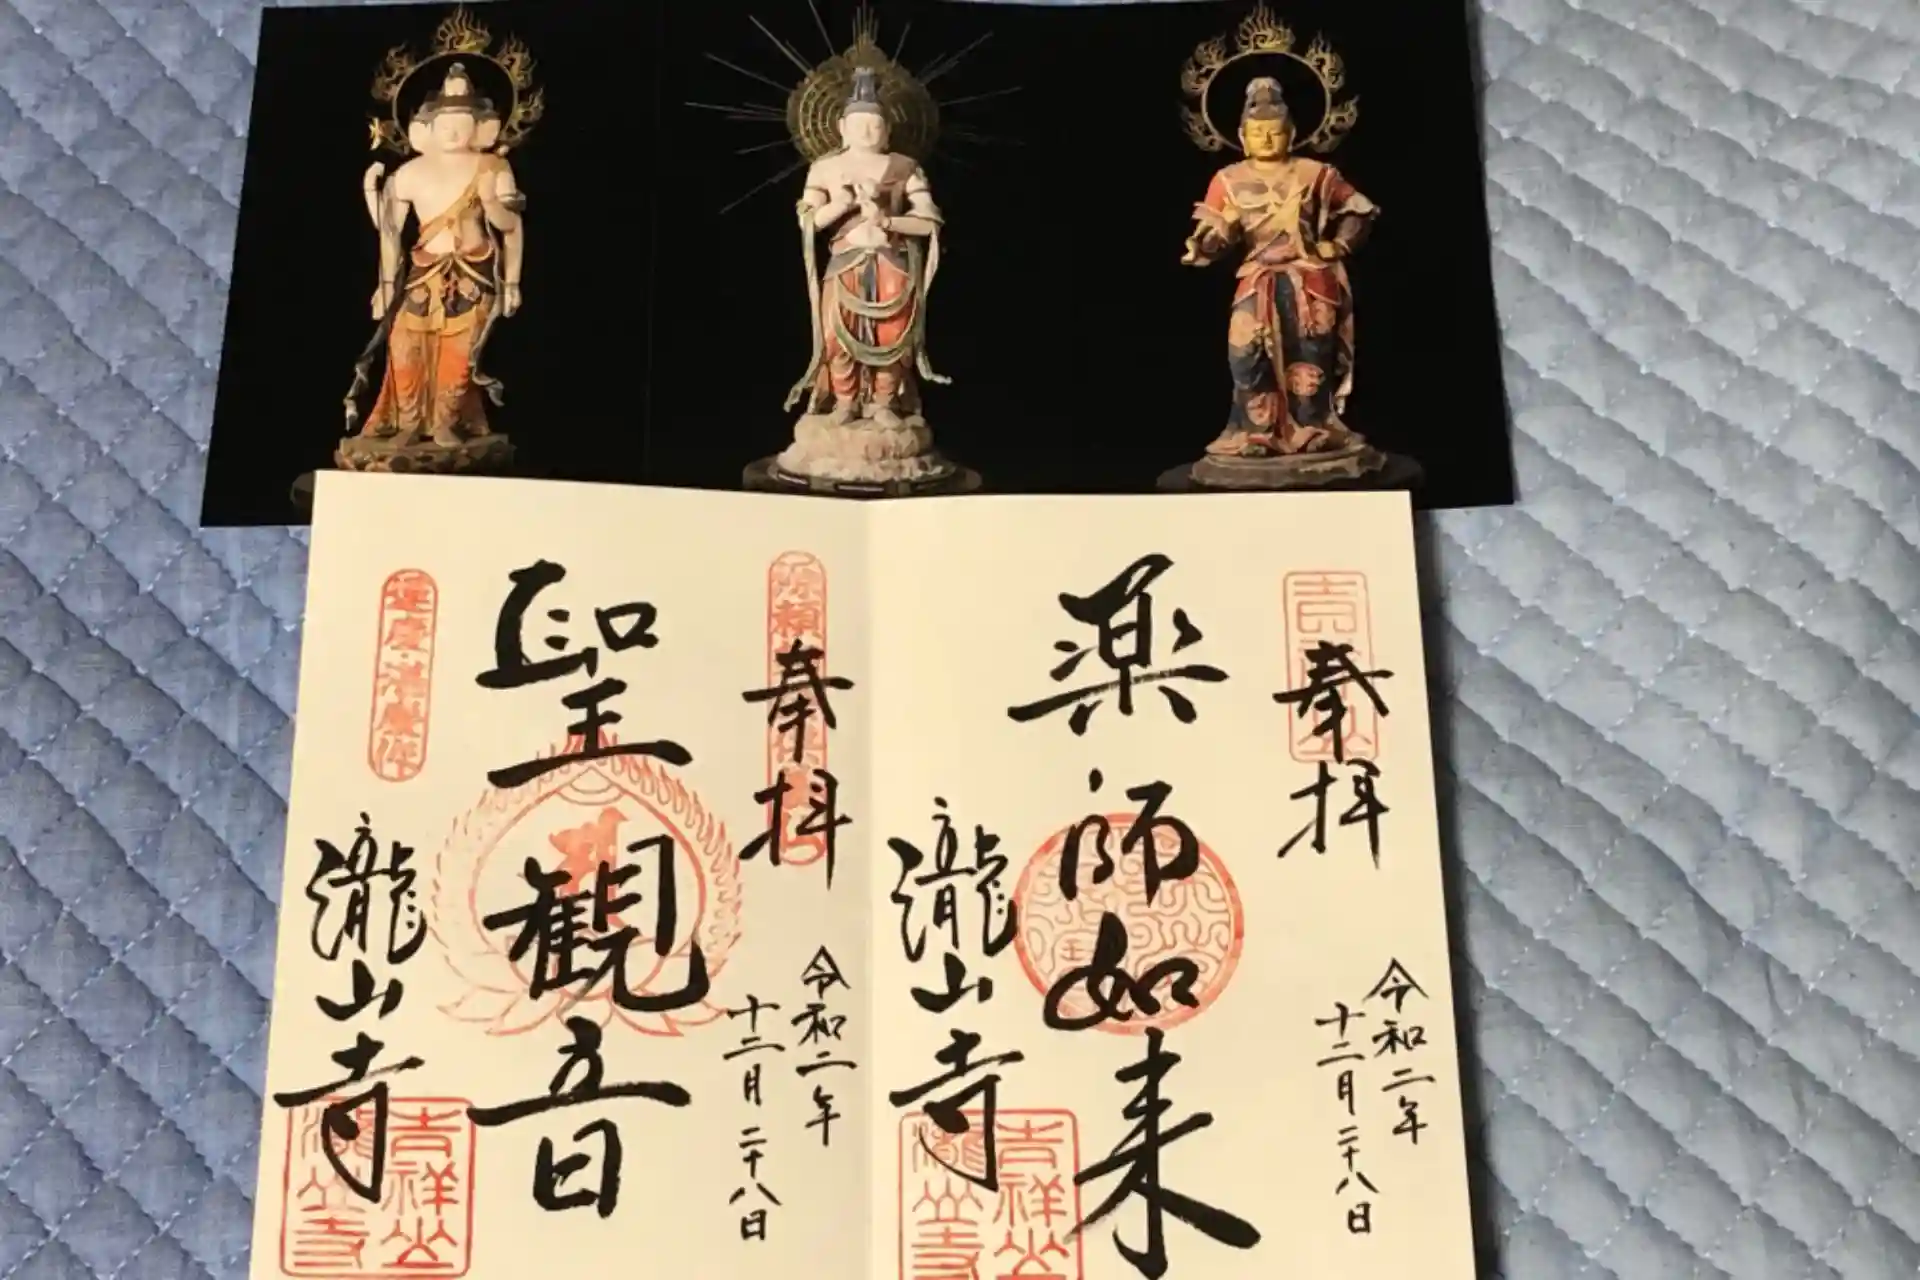 奉拝
令和二年
十二月二十八日
薬師如来
瀧山寺
吉祥
瀧山寺
奉拝
令和二年
十二月二十八日
聖観音
瀧山寺
運慶・湛慶作
吉祥山
瀧山寺